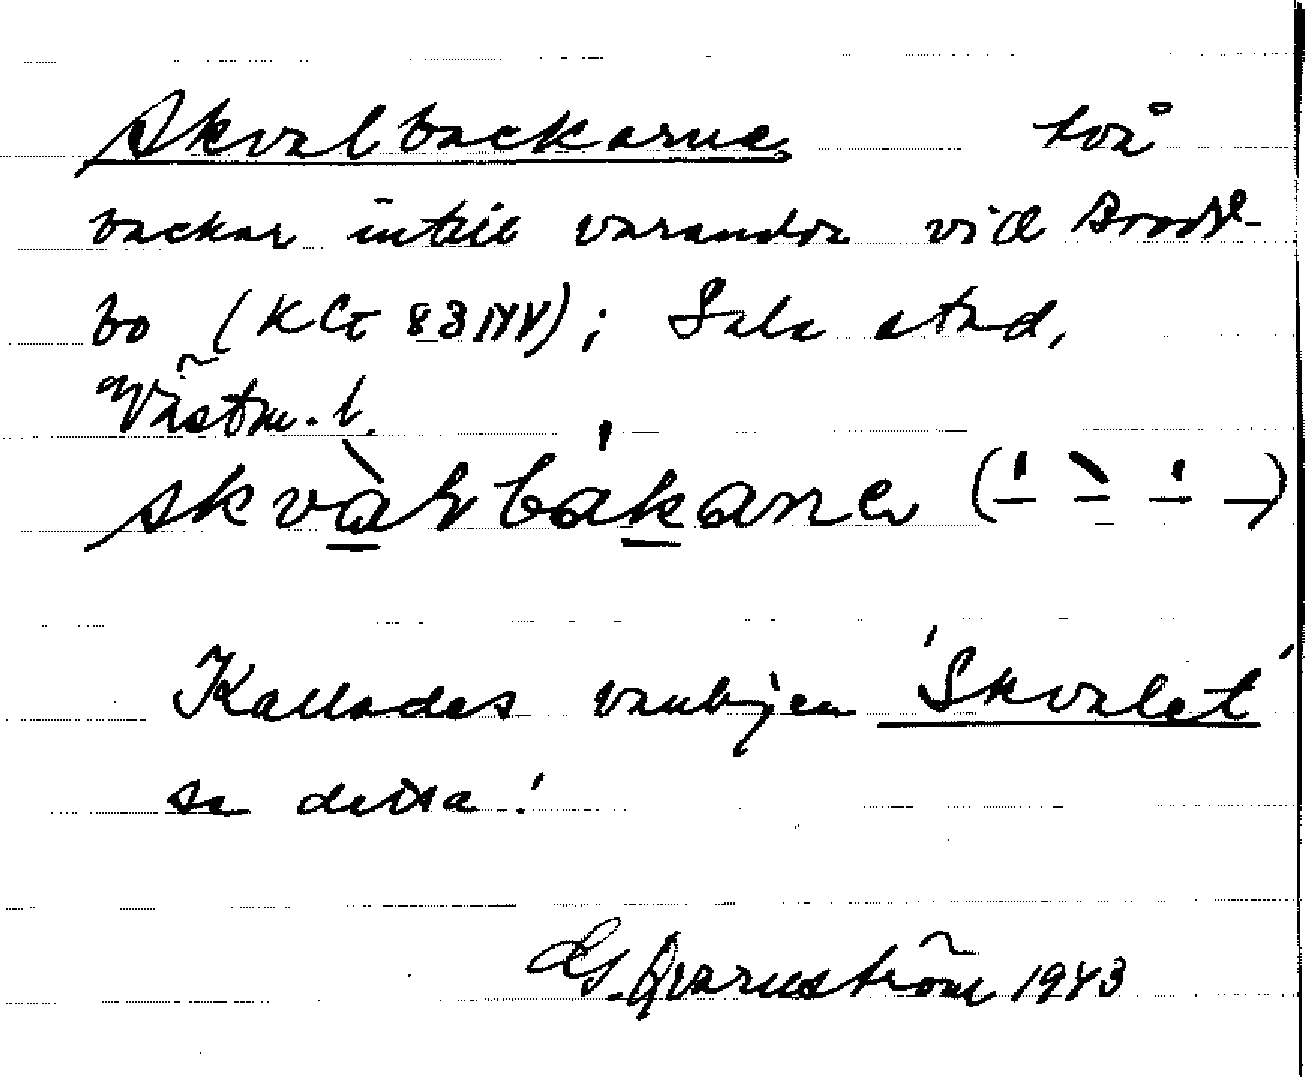 Skvalbackarna två
backar intill varandra vid
bo (KG 83 NV); Sala stad,
Västm. l.
skvàlbákana
Kallades vanligen 'Skvalet'
sa dessa!
G. Qvarnström 1943